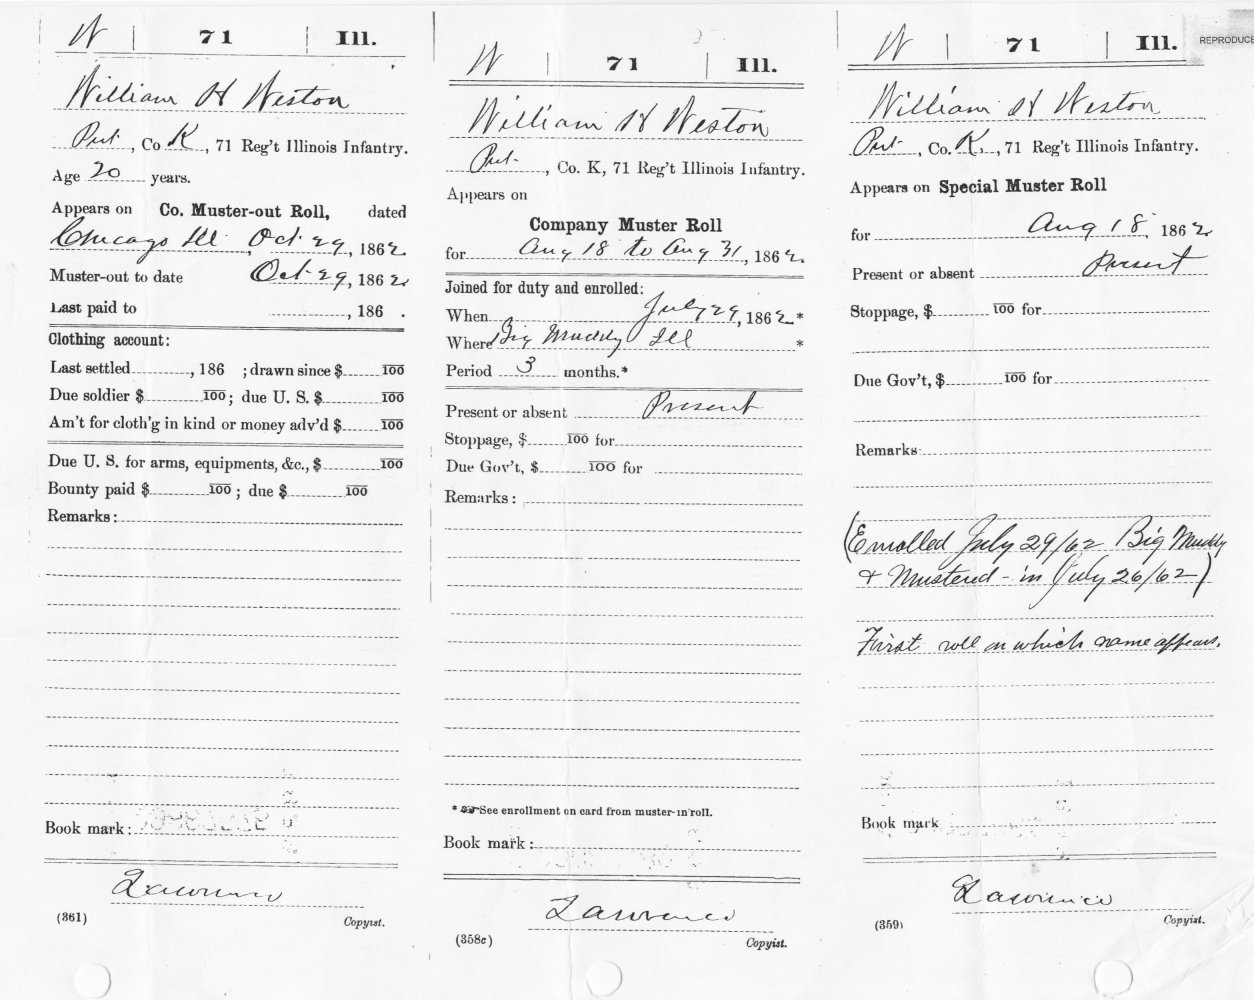 W | 71 | Ill.
William H Weston
Pvt., Co K, 71 Reg't Illinois Infantry.
Age 20 years.
Appears on Co. Muster-out Roll, dated
Chicago Ill, Oct 29, 1862.
Muster-out to date Oct 29, 1862
Last paid to , 186 .
Clothing account:
Last settled , 186 ; drawn since $ 100
Due soldier $ 100; due U. S. $ 100
Am't for cloth'g in kind or money adv'd $ 100
Due U. S. for arms, equipments, &c., $ 100
Bounty paid $ 100; due $ 100
Remarks:
Book mark:
Lawrence
(361) Copyist.
W | 71 | Ill.
William H Weston
Pvt., Co. K, 71 Reg't Illinois Infantry.
Appears on
Company Muster Roll
for Aug 18 to Aug 31, 1862.
Joined for duty and enrolled:
When July 29, 1862.*
Where Big Muddy Ill *
Period 3 months.*
Present or absent Present
Stoppage, $ 100 for
Due Gov't, $ 100 for
Remarks:
* ☞See enrollment on card from muster-in roll.
Book mark:
Lawrence
(358c) Copyist.
REPRODUCE
W | 71 | Ill.
William H Weston
Pvt., Co. K, 71 Reg't Illinois Infantry.
Appears on Special Muster Roll
for Aug 18, 1862
Present or absent Present
Stoppage, $ 100 for
Due Gov't, $ 100 for
Remarks:
(Enrolled July 29/62 Big Muddy
& Mustered-in July 26/62)
First roll on which name appears.
Book mark
Lawrence
(359) Copyist.